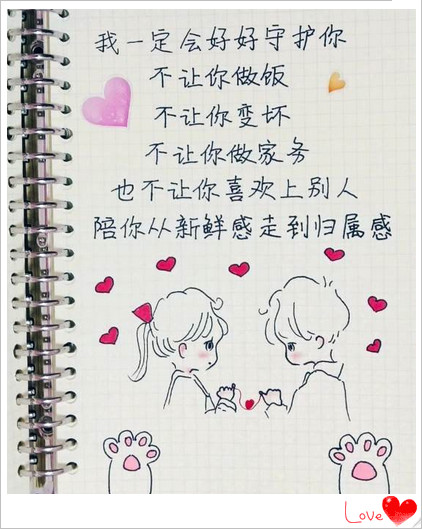 我一定会好好守护你
不让你做饭
不让你变坏
不让你做家务
也不让你喜欢上别人
陪你从新鲜感走到归属感
Love